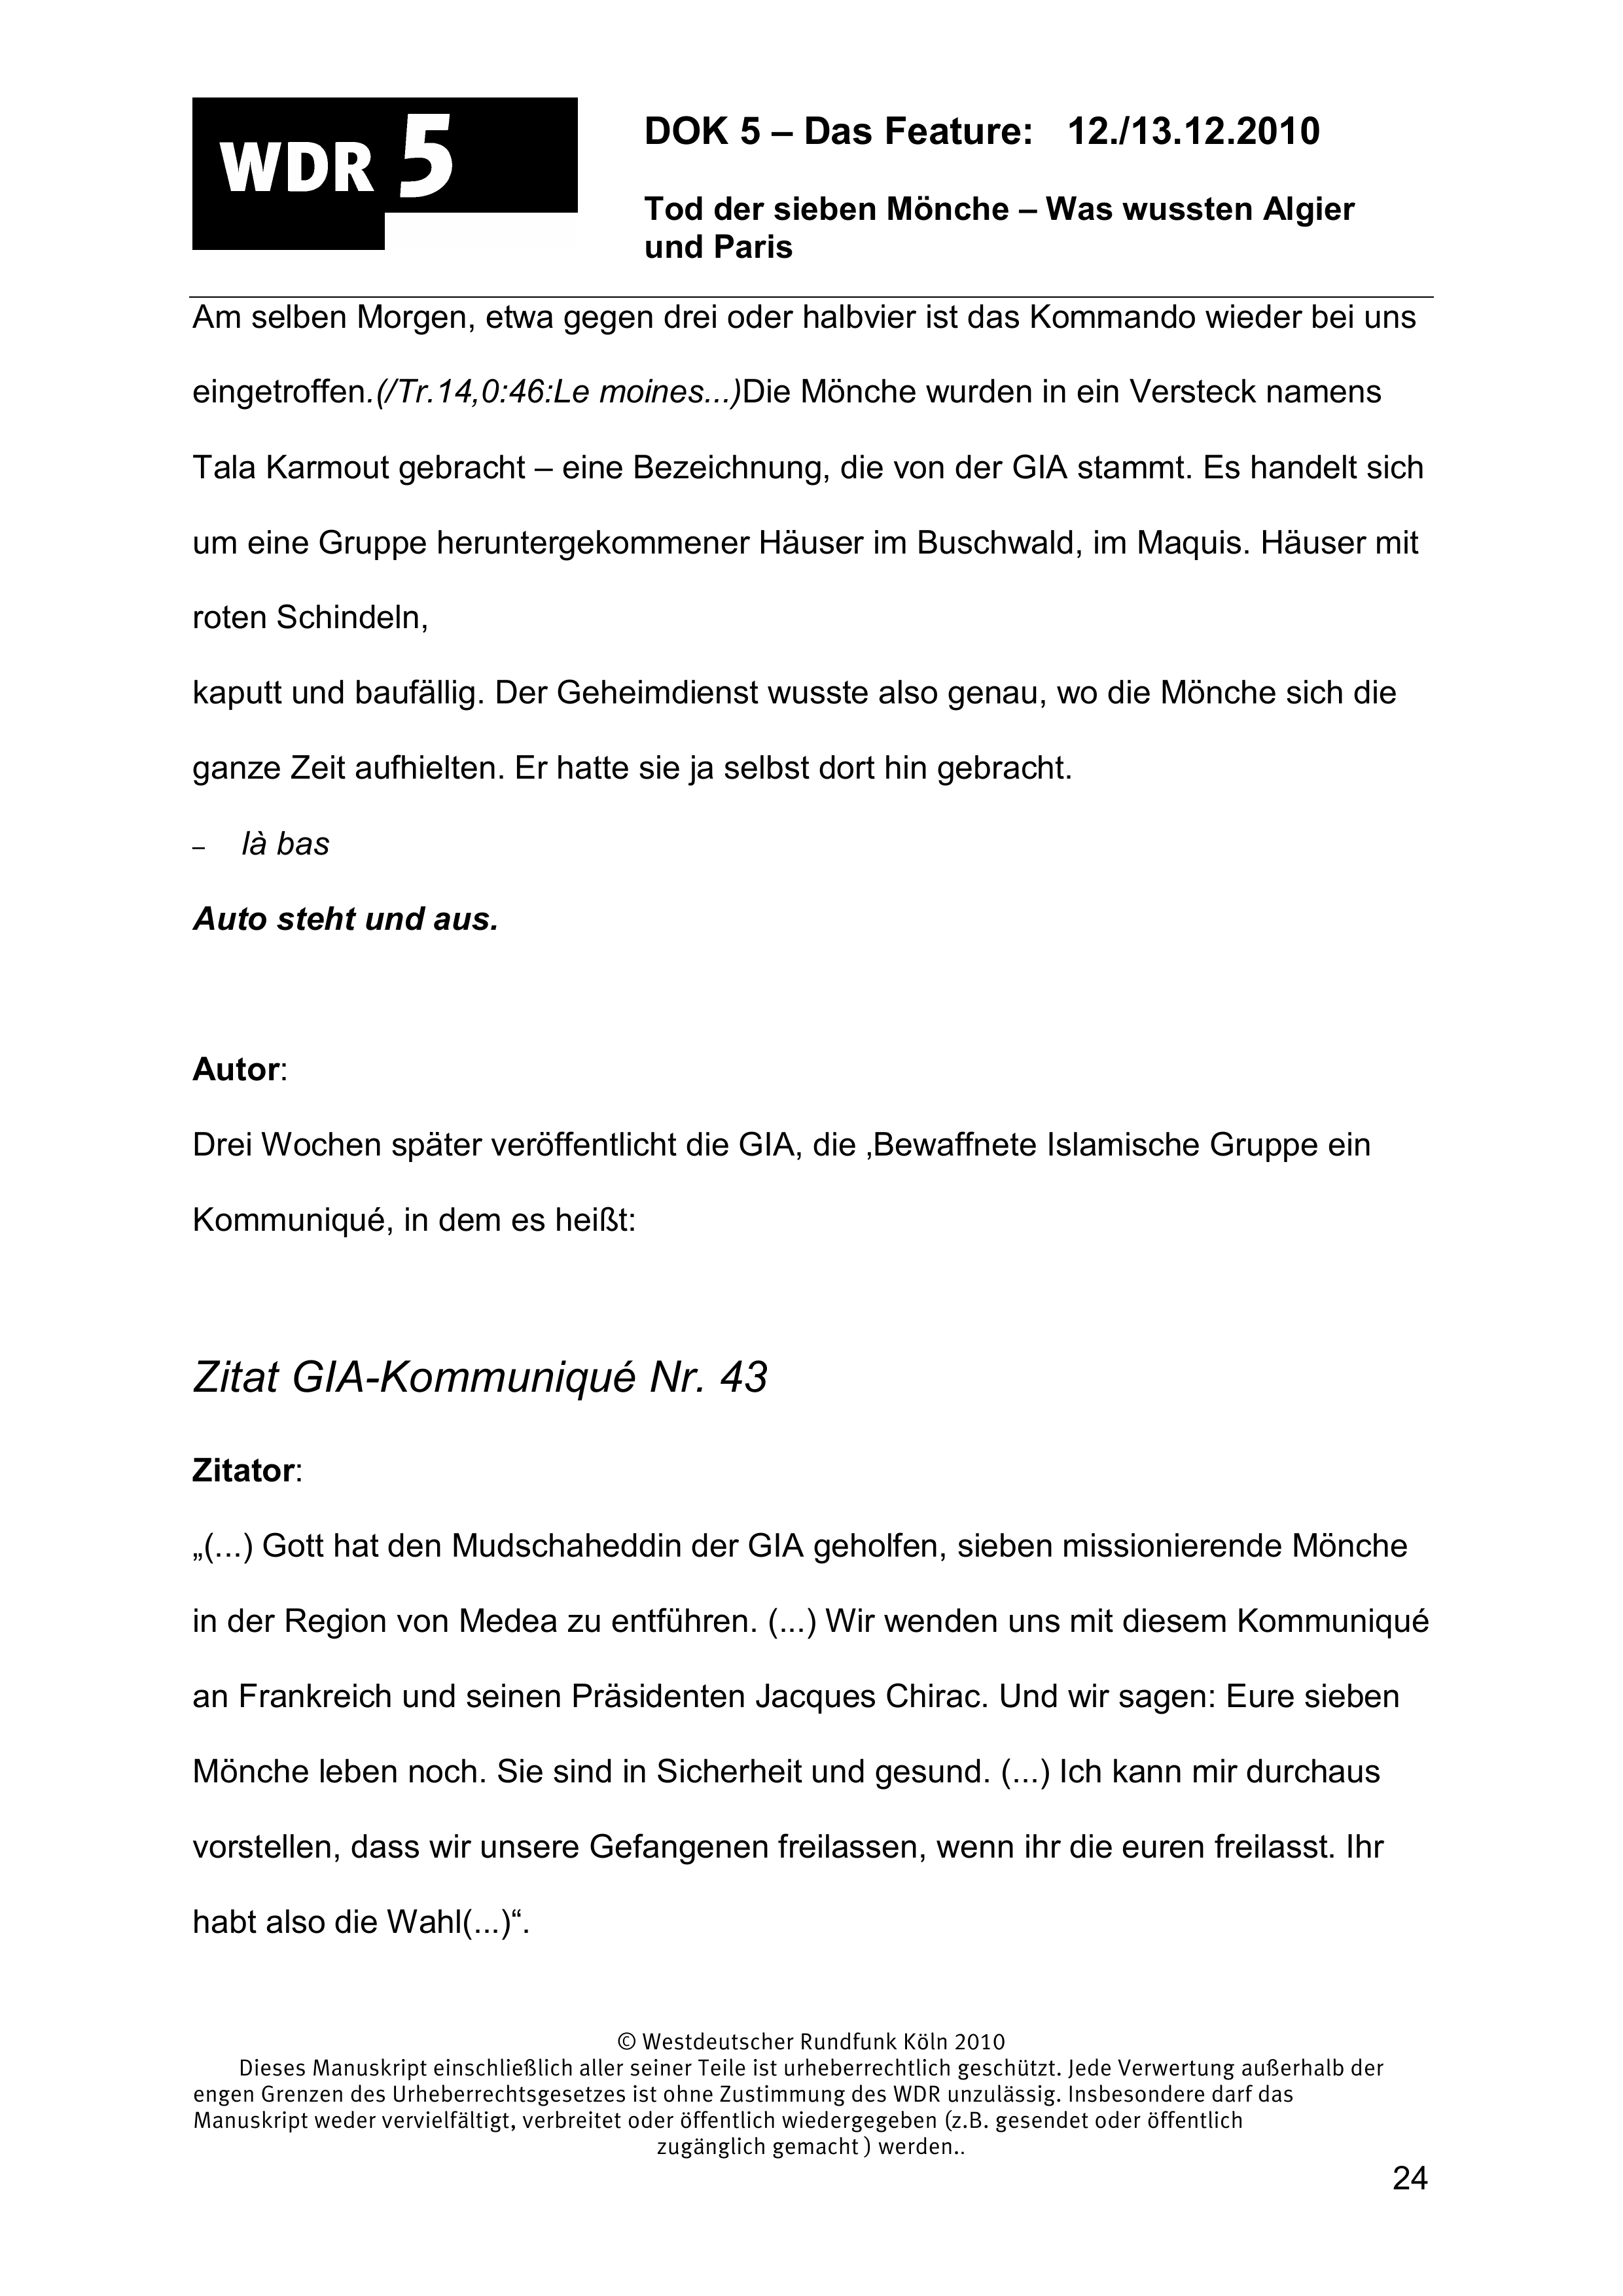 WDR 5
DOK 5 – Das Feature: 12./13.12.2010
Tod der sieben Mönche – Was wussten Algier
und Paris
Am selben Morgen, etwa gegen drei oder halbvier ist das Kommando wieder bei uns
eingetroffen.(/Tr.14,0:46:Le moines...)Die Mönche wurden in ein Versteck namens
Tala Karmout gebracht – eine Bezeichnung, die von der GIA stammt. Es handelt sich
um eine Gruppe heruntergekommener Häuser im Buschwald, im Maquis. Häuser mit
roten Schindeln,
kaputt und baufällig. Der Geheimdienst wusste also genau, wo die Mönche sich die
ganze Zeit aufhielten. Er hatte sie ja selbst dort hin gebracht.
– là bas
Auto steht und aus.
Autor:
Drei Wochen später veröffentlicht die GIA, die ‚Bewaffnete Islamische Gruppe ein
Kommuniqué, in dem es heißt:
Zitat GIA-Kommuniqué Nr. 43
Zitator:
„(...) Gott hat den Mudschaheddin der GIA geholfen, sieben missionierende Mönche
in der Region von Medea zu entführen. (...) Wir wenden uns mit diesem Kommuniqué
an Frankreich und seinen Präsidenten Jacques Chirac. Und wir sagen: Eure sieben
Mönche leben noch. Sie sind in Sicherheit und gesund. (...) Ich kann mir durchaus
vorstellen, dass wir unsere Gefangenen freilassen, wenn ihr die euren freilasst. Ihr
habt also die Wahl(...)“.
© Westdeutscher Rundfunk Köln 2010
Dieses Manuskript einschließlich aller seiner Teile ist urheberrechtlich geschützt. Jede Verwertung außerhalb der
engen Grenzen des Urheberrechtsgesetzes ist ohne Zustimmung des WDR unzulässig. Insbesondere darf das
Manuskript weder vervielfältigt, verbreitet oder öffentlich wiedergegeben (z.B. gesendet oder öffentlich
zugänglich gemacht ) werden..
24